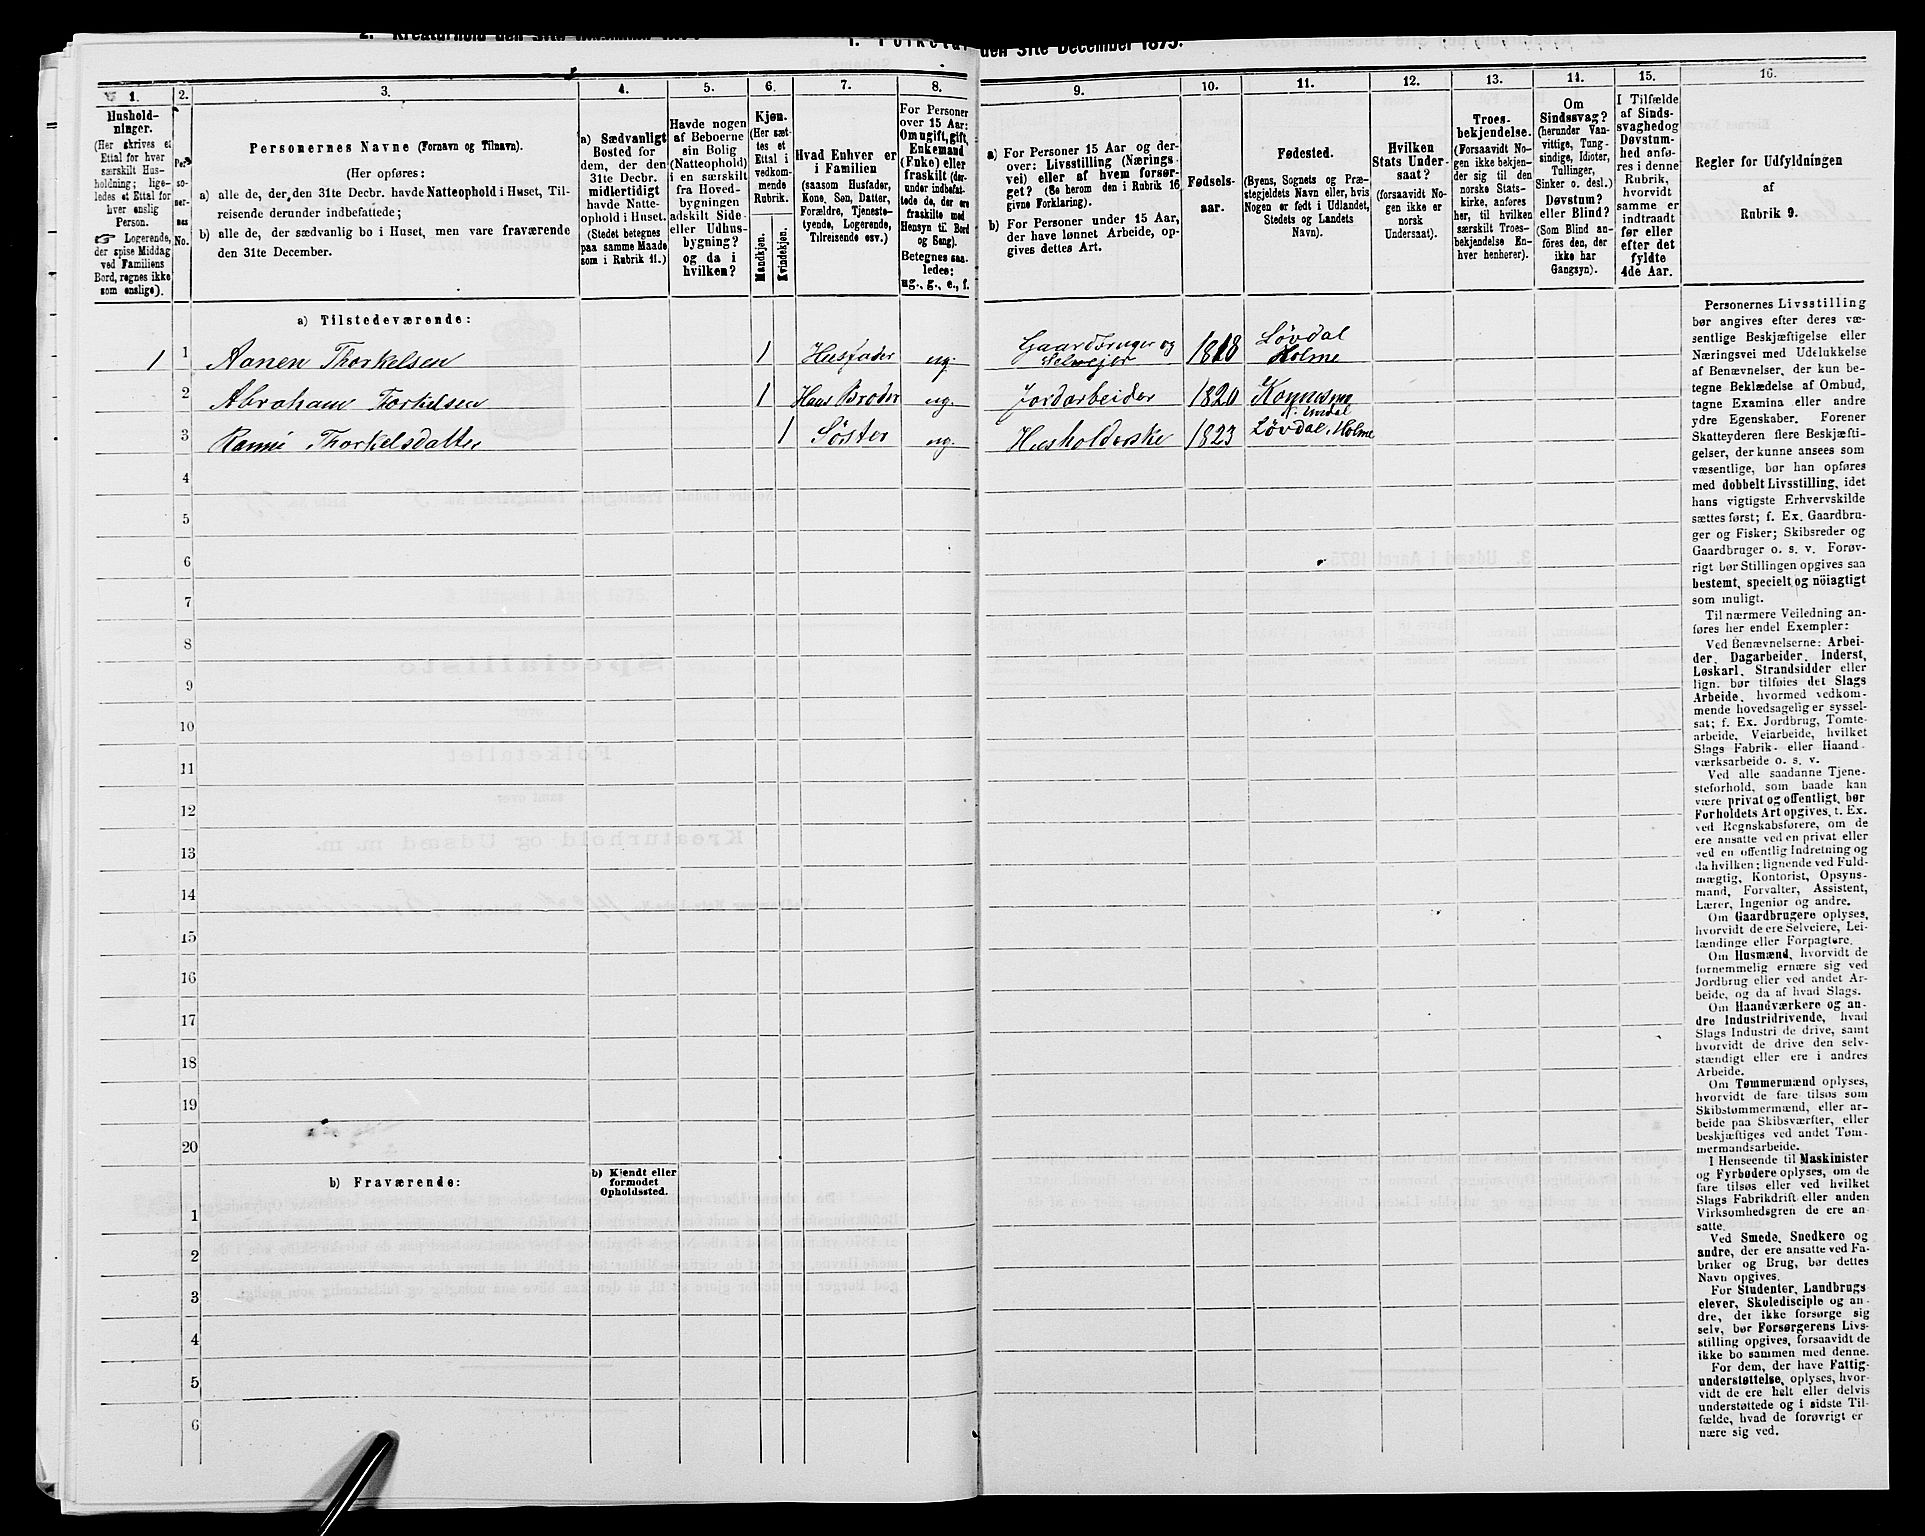 1. Folketal den 31te December 1875.
1.
Hushold-
ninger.
(Her skrives et
Ettal for hver
særskilt Hus-
holdning; lige-
ledes et Ettal for
hver enslig
Person.
☞ Logerende,
der spise Middag
ved Familiens
Bord, regnes ikke
som enslige).
2.
Per-
so-
ner-
nes
No.
3.
Personernes Navne (Fornavn og Tilnavn).
(Her opføres:
a) alle de, der den 31te Decbr. havde Natteophold i Huset, Til-
reisende derunder indbefattede;
b) alle de, der sædvanlig bo i Huset, men vare fraværende
den 31te December.
4.
a) Sædvanligt
Bosted for
dem, der den
31te Decbr.
midlertidigt
havde Natte-
ophold i Huset.
(Stedet betegnes
paa samme Maade
som i Rubrik 11.)
5.
Havde nogen
af Beboerne
sin Bolig
(Natteophold)
i en særskilt
fra Hoved-
bygningen
adskilt Side-
eller Udhus-
bygning?
og da i
hvilken?
6.
Kjøn.
(Her sæt-
tes et
Ettal i
vedkom-
mende
Rubrik.
Mandkjøn.
Kvindekjøn.
7.
Hvad Enhver er
i Familien
(saasom Husfader,
Kone, Søn, Datter,
Forældre, Tjeneste-
tyende, Logerende,
Tilreisende osv.)
8.
For Personer
over 15 Aar:
Om ugift, gift,
Enkemand
(Enke) eller
fraskilt (der-
under indbefat-
tede de, der ere
fraskilte med
Hensyn til Bord
og Seng).
Betegnes saa-
ledes:
ug., g., e., f.
9.
a) For Personer 15 Aar og der-
over: Livsstilling (Nærings-
vei) eller af hvem forsør-
get? (Se herom den i Rubrik 16
givne Forklaring).
b) For Personer under 15 Aar,
der have lønnet Arbeide, op-
gives dettes Art.
10.
Fødsels-
aar.
11.
Fødested.
(Byens, Sognets og Præ-
stegjeldets Navn eller, hvis
Nogen er født i Udlandet,
Stedets og Landets
Navn).
12.
Hvilken
Stats Under-
saat?
(forsaavidt No-
gen ikke er
norsk
Undersaat).
13.
Troes-
bekjendelse.
(Forsaavidt No-
gen ikke bekjen-
der sig til den
norske Stats-
kirke, anføres
her, til hvilken
særskilt Troes-
bekjendelse En-
hver henhører).
14.
Om
Sindssvag?
(herunder Van-
vittige, Tung-
sindige, Idioter,
Tullinger,
Sinker o. desl.)
Døvstum?
eller Blind?
(Som Blind an-
føres den, der
ikke har
Gangsyn).
15.
I Tilfælde
af Sinds-
svaghed og
Døvstum-
hed anfø-
res i denne
Rubrik,
hvorvidt
samme er
indtraadt
før eller
efter det
fyldte
4de Aar.
16.
Regler for Udfyldningen
af
Rubrik 9.
a) Tilstedeværende:
1 1 Aanen Thorkelsen 1 Husfader ug. Gaardbruger og Selveier 1818 Løvdal Holme
2 Abraham Torkelsen 1 Hans Broder ug. Jordarbeider 1820 Konnesmo N. Undal
3 Thorkelsdatter 1 Søster ug. Husholderske 1823 Løvdal, Holme
4
5
6
7
8
9
10
11
12
13
14
15
16
17
18
19
20
b) Fraværende:
b) Kjendt eller
formodet
Opholdssted.
1
2
3
4
5
6
Personernes Livsstilling
bør angives efter deres væ-
sentlige Beskjæftigelse eller
Næringsvei med Udelukkelse
af Benævnelser, der kun be-
tegne Beklædelse af Ombud,
tagne Examina eller andre
ydre Egenskaber. Forener
Skatteyderen flere Beskjæfti-
gelser, der kunne ansees som
væsentlige, bør han opføres
med dobbelt Livsstilling, idet
hans vigtigste Erhvervskilde
sættes først; f. Ex. Gaardbru-
ger og Fisker; Skibsreder og
Gaardbruger o. s. v. Forøv-
rigt bør Stillingen opgives saa
bestemt, specielt og nöiagtigt
som muligt.
Til nærmere Veiledning an-
føres her endel Exempler:
Ved Benævnelserne: Arbei-
der, Dagarbeider, Inderst,
Løskarl, Strandsidder eller
lign. bør tilføies det Slags
Arbeide, hvormed vedkom-
mende hovedsagelig er syssel-
sat; f. Ex. Jordbrug, Tomte-
arbeide, Veiarbeide, hvilket
Slags Fabrik- eller Haand-
værksarbeide o. s. v.
Ved alle saadanne Tjene-
steforhold, som baade kan
være privat og offentligt, bør
Forholdets Art opgives, t. Ex.
ved Regnskabsførere, om de
ere ansatte ved en privat eller
ved en offentlig Indretning og
da hvilken; lignende ved Fuld-
mægtig, Kontorist, Opsyns-
mand, Forvalter, Assistent,
Lærer, Ingeniør og andre.
Om Gaardbrugere oplyses,
hvorvidt de ere Selveiere, Lei-
lændinge eller Forpagtere.
Om Husmænd, hvorvidt de
fornemmelig ernære sig ved
Jordbrug eller ved andet Ar-
beide, og da af hvad Slags.
Om Haandværkere og an-
dre Industridrivende, hvad
Slags Industri de drive, samt
hvorvidt de drive den selv-
stændigt eller ere i andres
Arbeide.
Om Tømmermænd oplyses,
hvorvidt de fare tilsøs som
Skibstømmermænd, eller ar-
beide paa Skibsværfter, eller
beskjæftiges ved andet Tøm-
mermandsarbeide.
I Henseende til Maskinister
og Fyrbødere oplyses, om de
fare tilsøs eller ved hvilket
Slags Fabrikdrift eller anden
Virksomhedsgren de ere an-
satte.
Ved Smede, Snedkere og
andre, der ere ansatte ved Fa-
briker og Brug, bør dettes
Navn opgives.
For Studenter, Landbrugs-
elever, Skoledisciple og an-
dre, der ikke forsørge sig
selv, bør Forsørgerens Livs-
stilling opgives, forsaavidt de
ikke bo sammen med denne.
For dem, der have Fattig-
understøttelse, oplyses, hvor-
vidt de ere helt eller delvis
understøttede og i sidste Til-
fælde, hvad de forøvrigt er
nære sig ved.